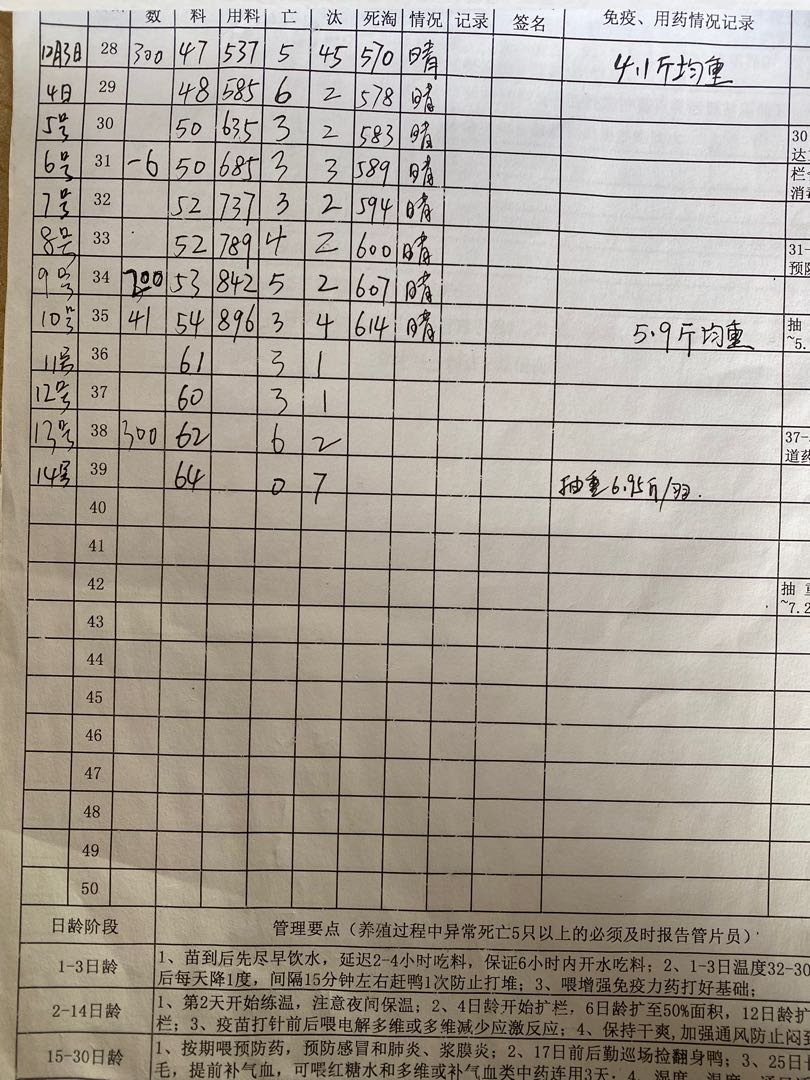 数 料 用料 亡 汰 死淘 情况 记录 签名 免疫、用药情况记录
12月3日 28 300 47 537 5 45 570 晴 4.1斤均重
4日 29 48 585 6 2 578 晴
5号 30 50 635 3 2 583 晴 30
达
6号 31 -6 50 685 3 3 589 晴 栏
消毒
7号 32 52 737 3 2 594 晴
8号 33 52 789 4 2 600 晴 31-
预防
9号 34 200 53 842 5 2 607 晴
10号 35 41 54 896 3 4 614 晴 5.9斤均重 抽
~5.
11号 36 61 3 1
12号 37 60 3 1
13号 38 300 62 6 2 37-
道药
14号 39 64 0 7 抽重6.95斤/羽.
40
41
42 抽 重
~7.2
43
44
45
46
47
48
49
50
日龄阶段 管理要点（养殖过程中异常死亡5只以上的必须及时报告管片员）
1-3日龄 1、苗到后先尽早饮水，延迟2-4小时吃料，保证6小时内开水吃料；2、1-3日温度32-30
后每天降1度，间隔15分钟左右赶鸭1次防止打堆；3、喂增强免疫力药打好基础；
2-14日龄 1、第2天开始练温，注意夜间保温；2、4日龄开始扩栏，6日龄扩至50%面积，12日龄扩
栏；3、疫苗打针前后喂电解多维或多维减少应激反应；4、保持干爽,加强通风防止闷到
15-30日龄 1、按期喂预防药，预防感冒和肺炎、浆膜炎；2、17日前后勤巡场捡翻身鸭；3、25日
毛，提前补气血，可喂红糖水和多维或补气血类中药连用3天；4、温度、湿度、通风